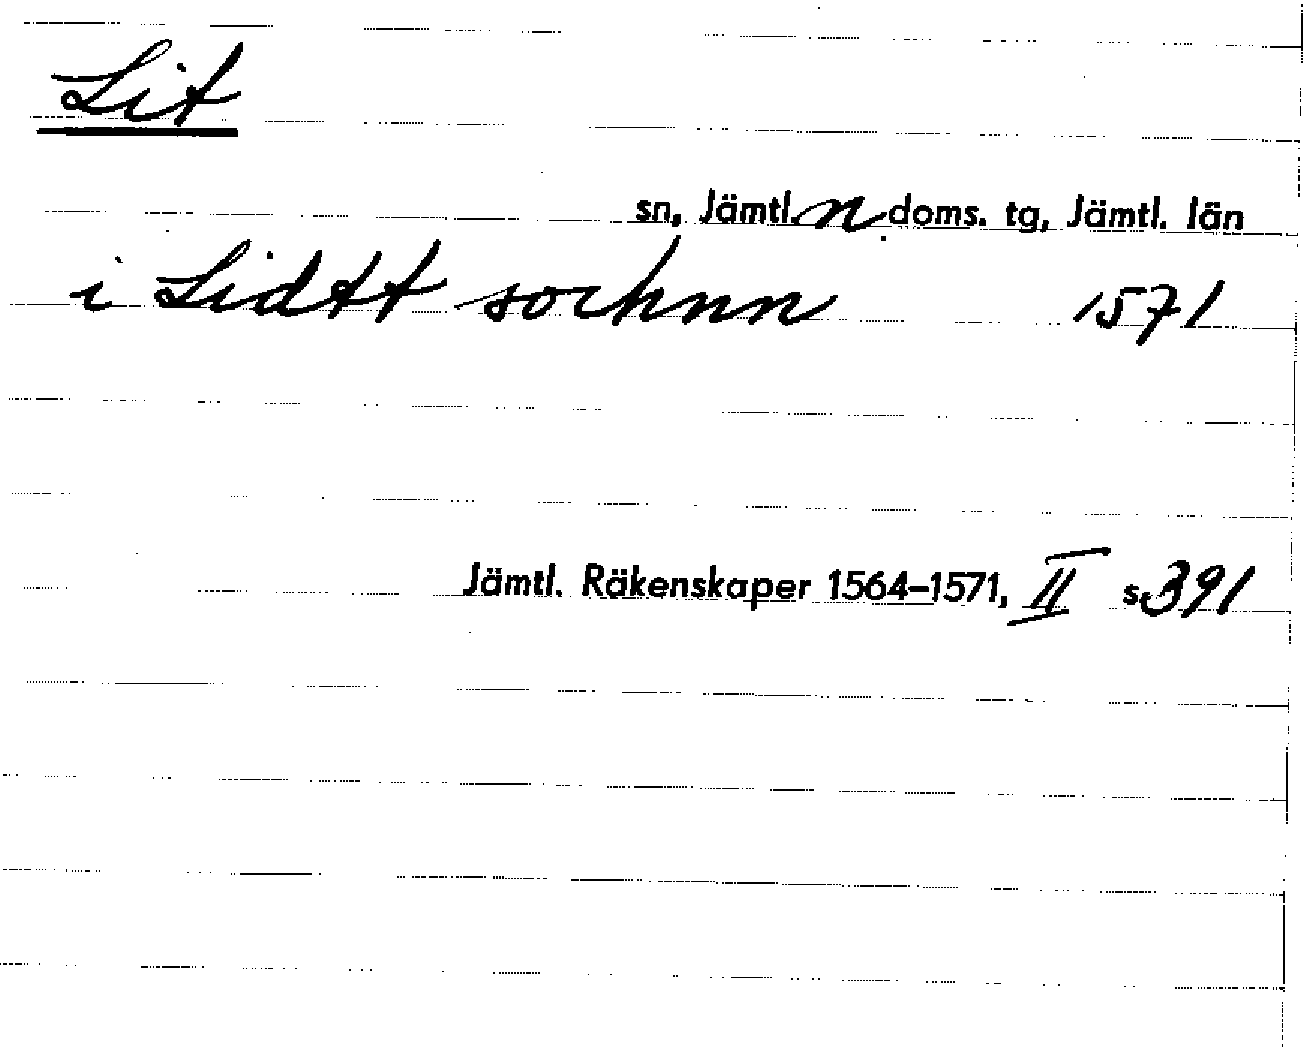 Lit
sn, Jämtl. n doms. tg, Jämtl. län
i Lidtt sochnn 1571
Jämtl. Räkenskaper 1564–1571, II s. 391